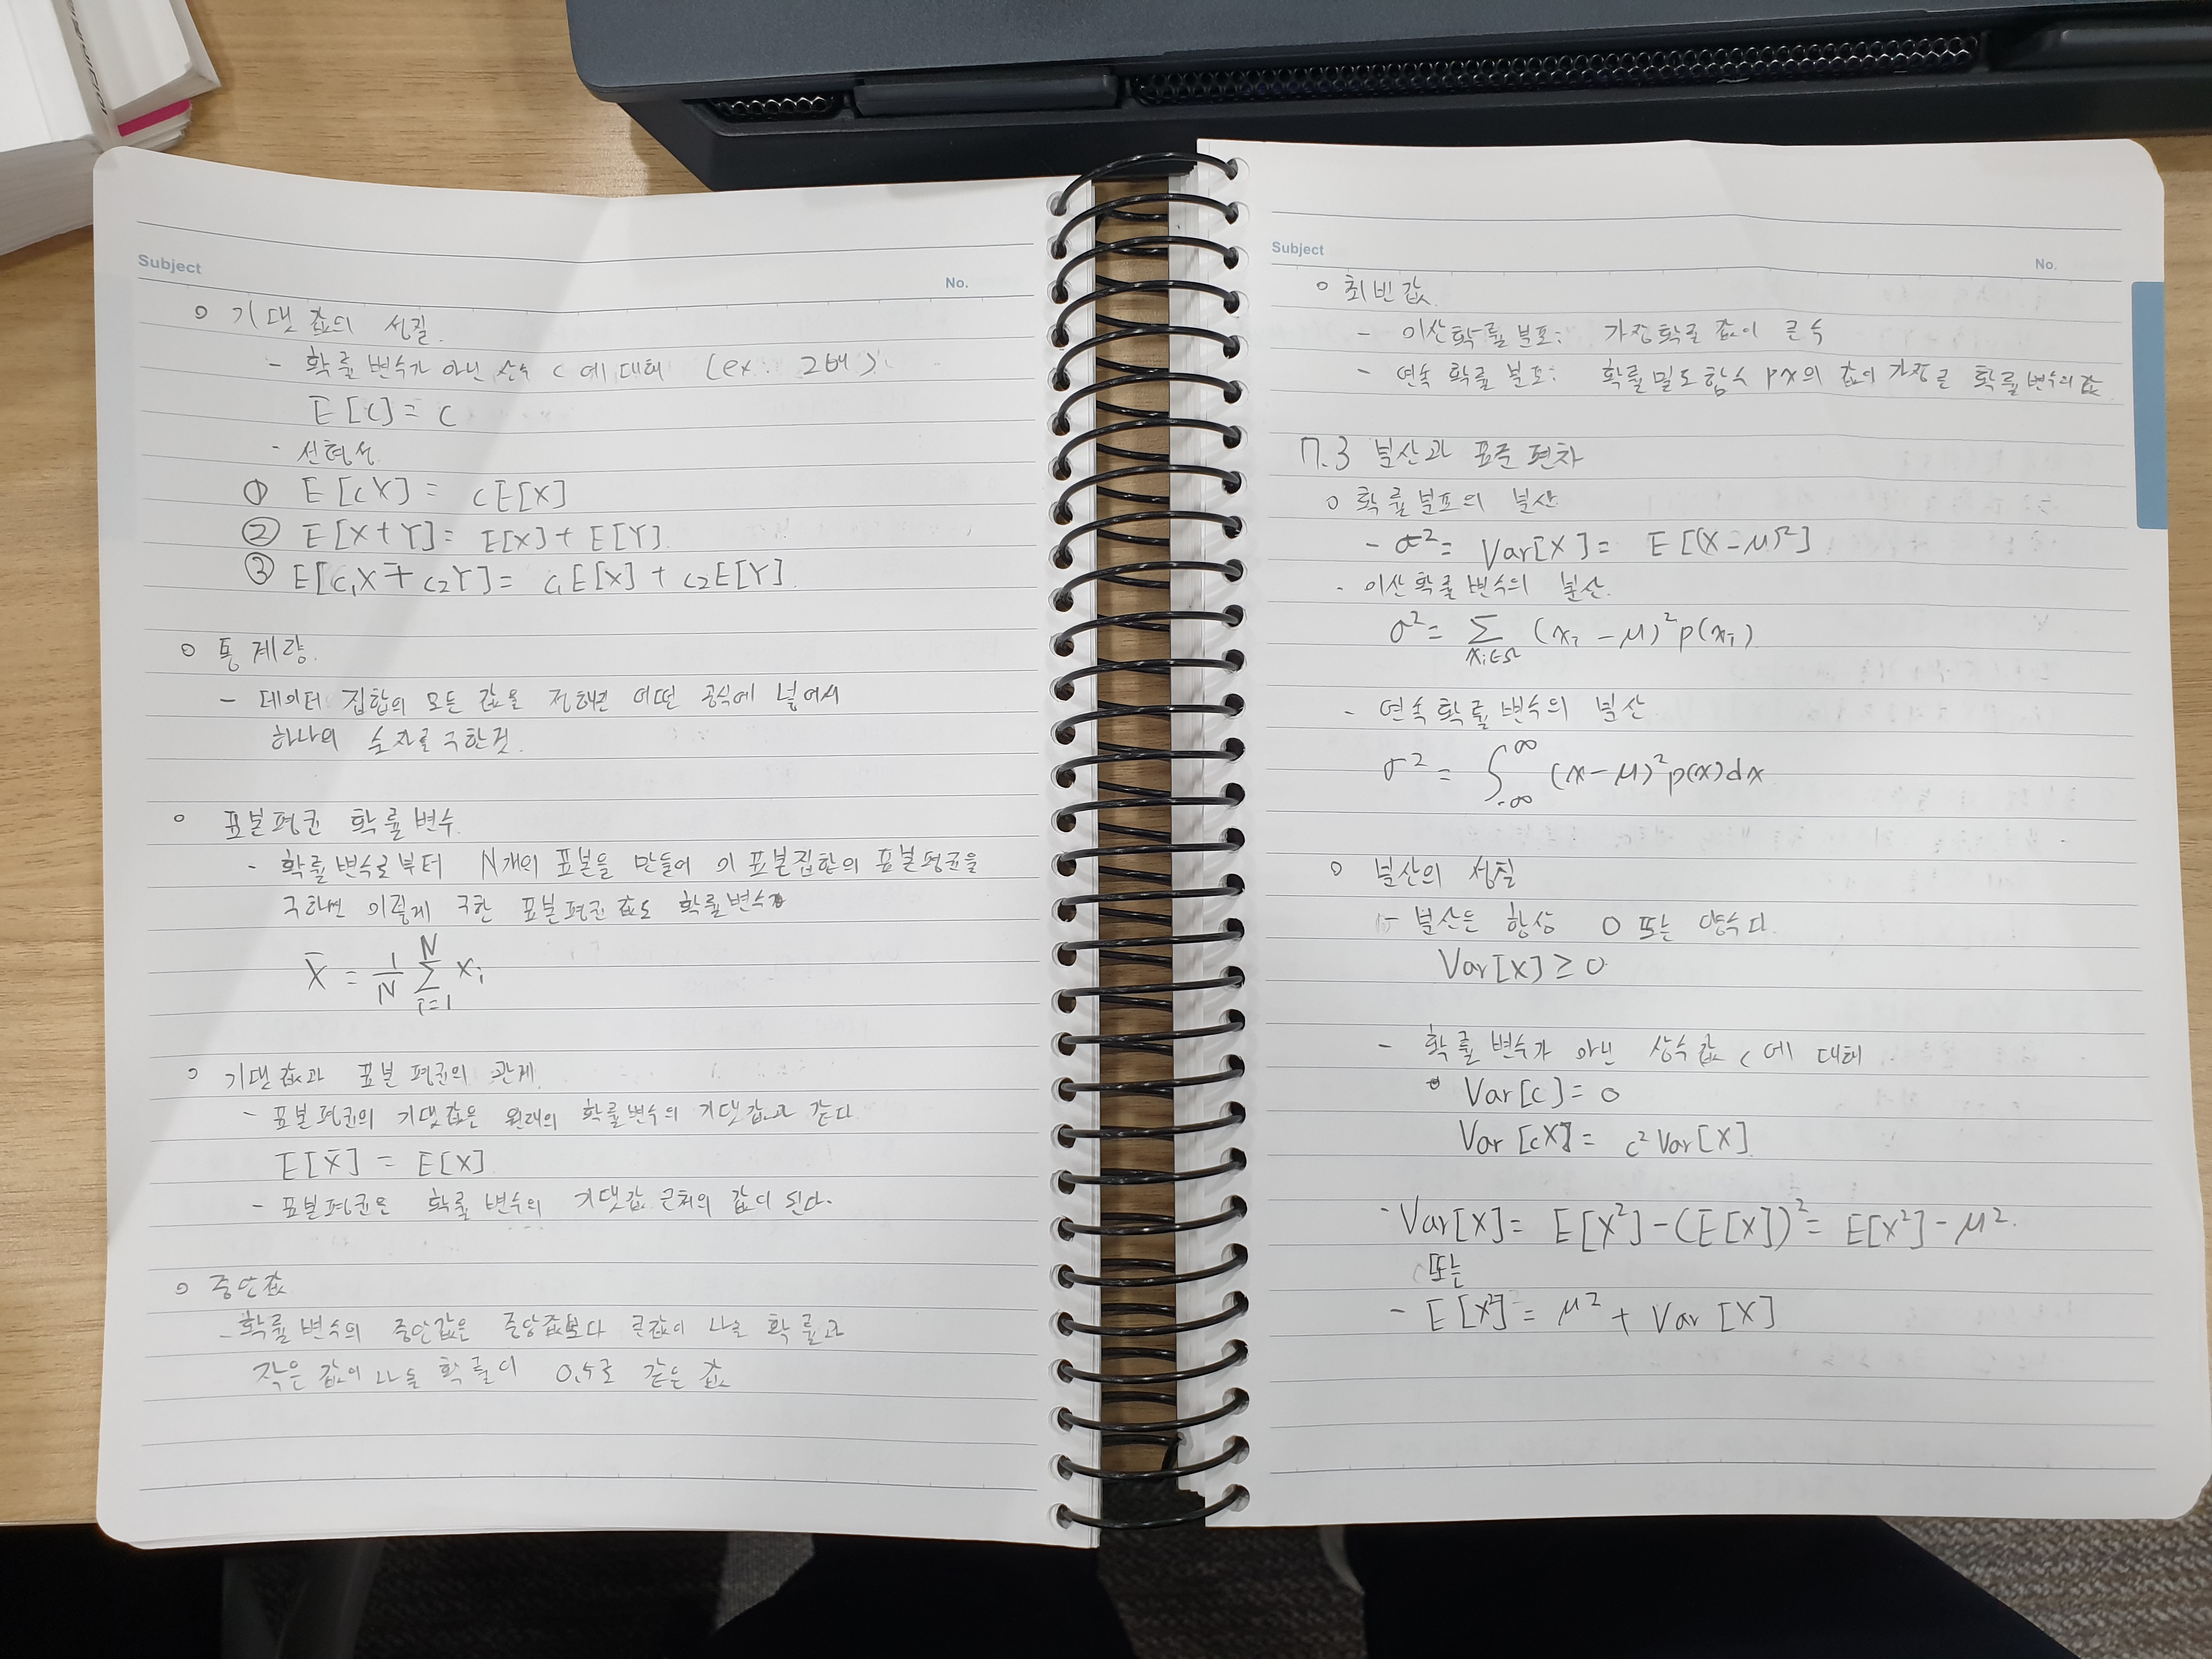 Subject
No.
○ 기댓값의 성질.
- 확률변수가 아닌 상수 c에 대해 (ex: 2배)
E[c] = c
- 선형성
① E[cX] = cE[X]
② E[X+Y] = E[X] + E[Y].
③ E[c₁X + c₂Y] = c₁E[X] + c₂E[Y].
○ 통계량.
- 데이터 집합의 모든 값을 정해진 어떤 공식에 넣어서
하나의 숫자로 구한것.
○ 표본평균 확률변수.
- 확률변수로부터 N개의 표본을 만들어 이 표본집합의 표본평균을
구하면 이렇게 구한 표본평균 값도 확률변수
X̄ = 1/N Σ_{i=1}^{N} xᵢ
○ 기댓값과 표본 평균의 관계.
- 표본평균의 기댓값은 원래의 확률변수의 기댓값과 같다.
E[X̄] = E[X]
- 표본평균은 확률변수의 기댓값 근처의 값이 된다.
○ 중앙값
- 확률변수의 중앙값은 중앙값보다 큰값이 나올 확률과
작은 값이 나올 확률이 0.5로 같은 값
Subject
No.
○ 최빈값.
- 이산확률분포: 가장확률 값이 큰 수
- 연속 확률 분포: 확률밀도함수 px의 값이 가장큰 확률변수의값
7.3 분산과 표준편차
○ 확률분포의 분산
- σ² = Var[X] = E[(X-μ)²]
- 이산확률변수의 분산.
σ² = Σ_{xᵢ∈Ω} (xᵢ - μ)² p(xᵢ)
- 연속확률변수의 분산
σ² = ∫_{-∞}^{∞} (x-μ)² p(x)dx
○ 분산의 성질
- 분산은 항상 0 또는 양수다.
Var[X] ≥ 0
- 확률변수가 아닌 상수값 c에 대해
Var[c] = 0
Var[cX] = c² Var[X].
- Var[X] = E[X²] - (E[X])² = E[X²] - μ².
또는
- E[X²] = μ² + Var[X]